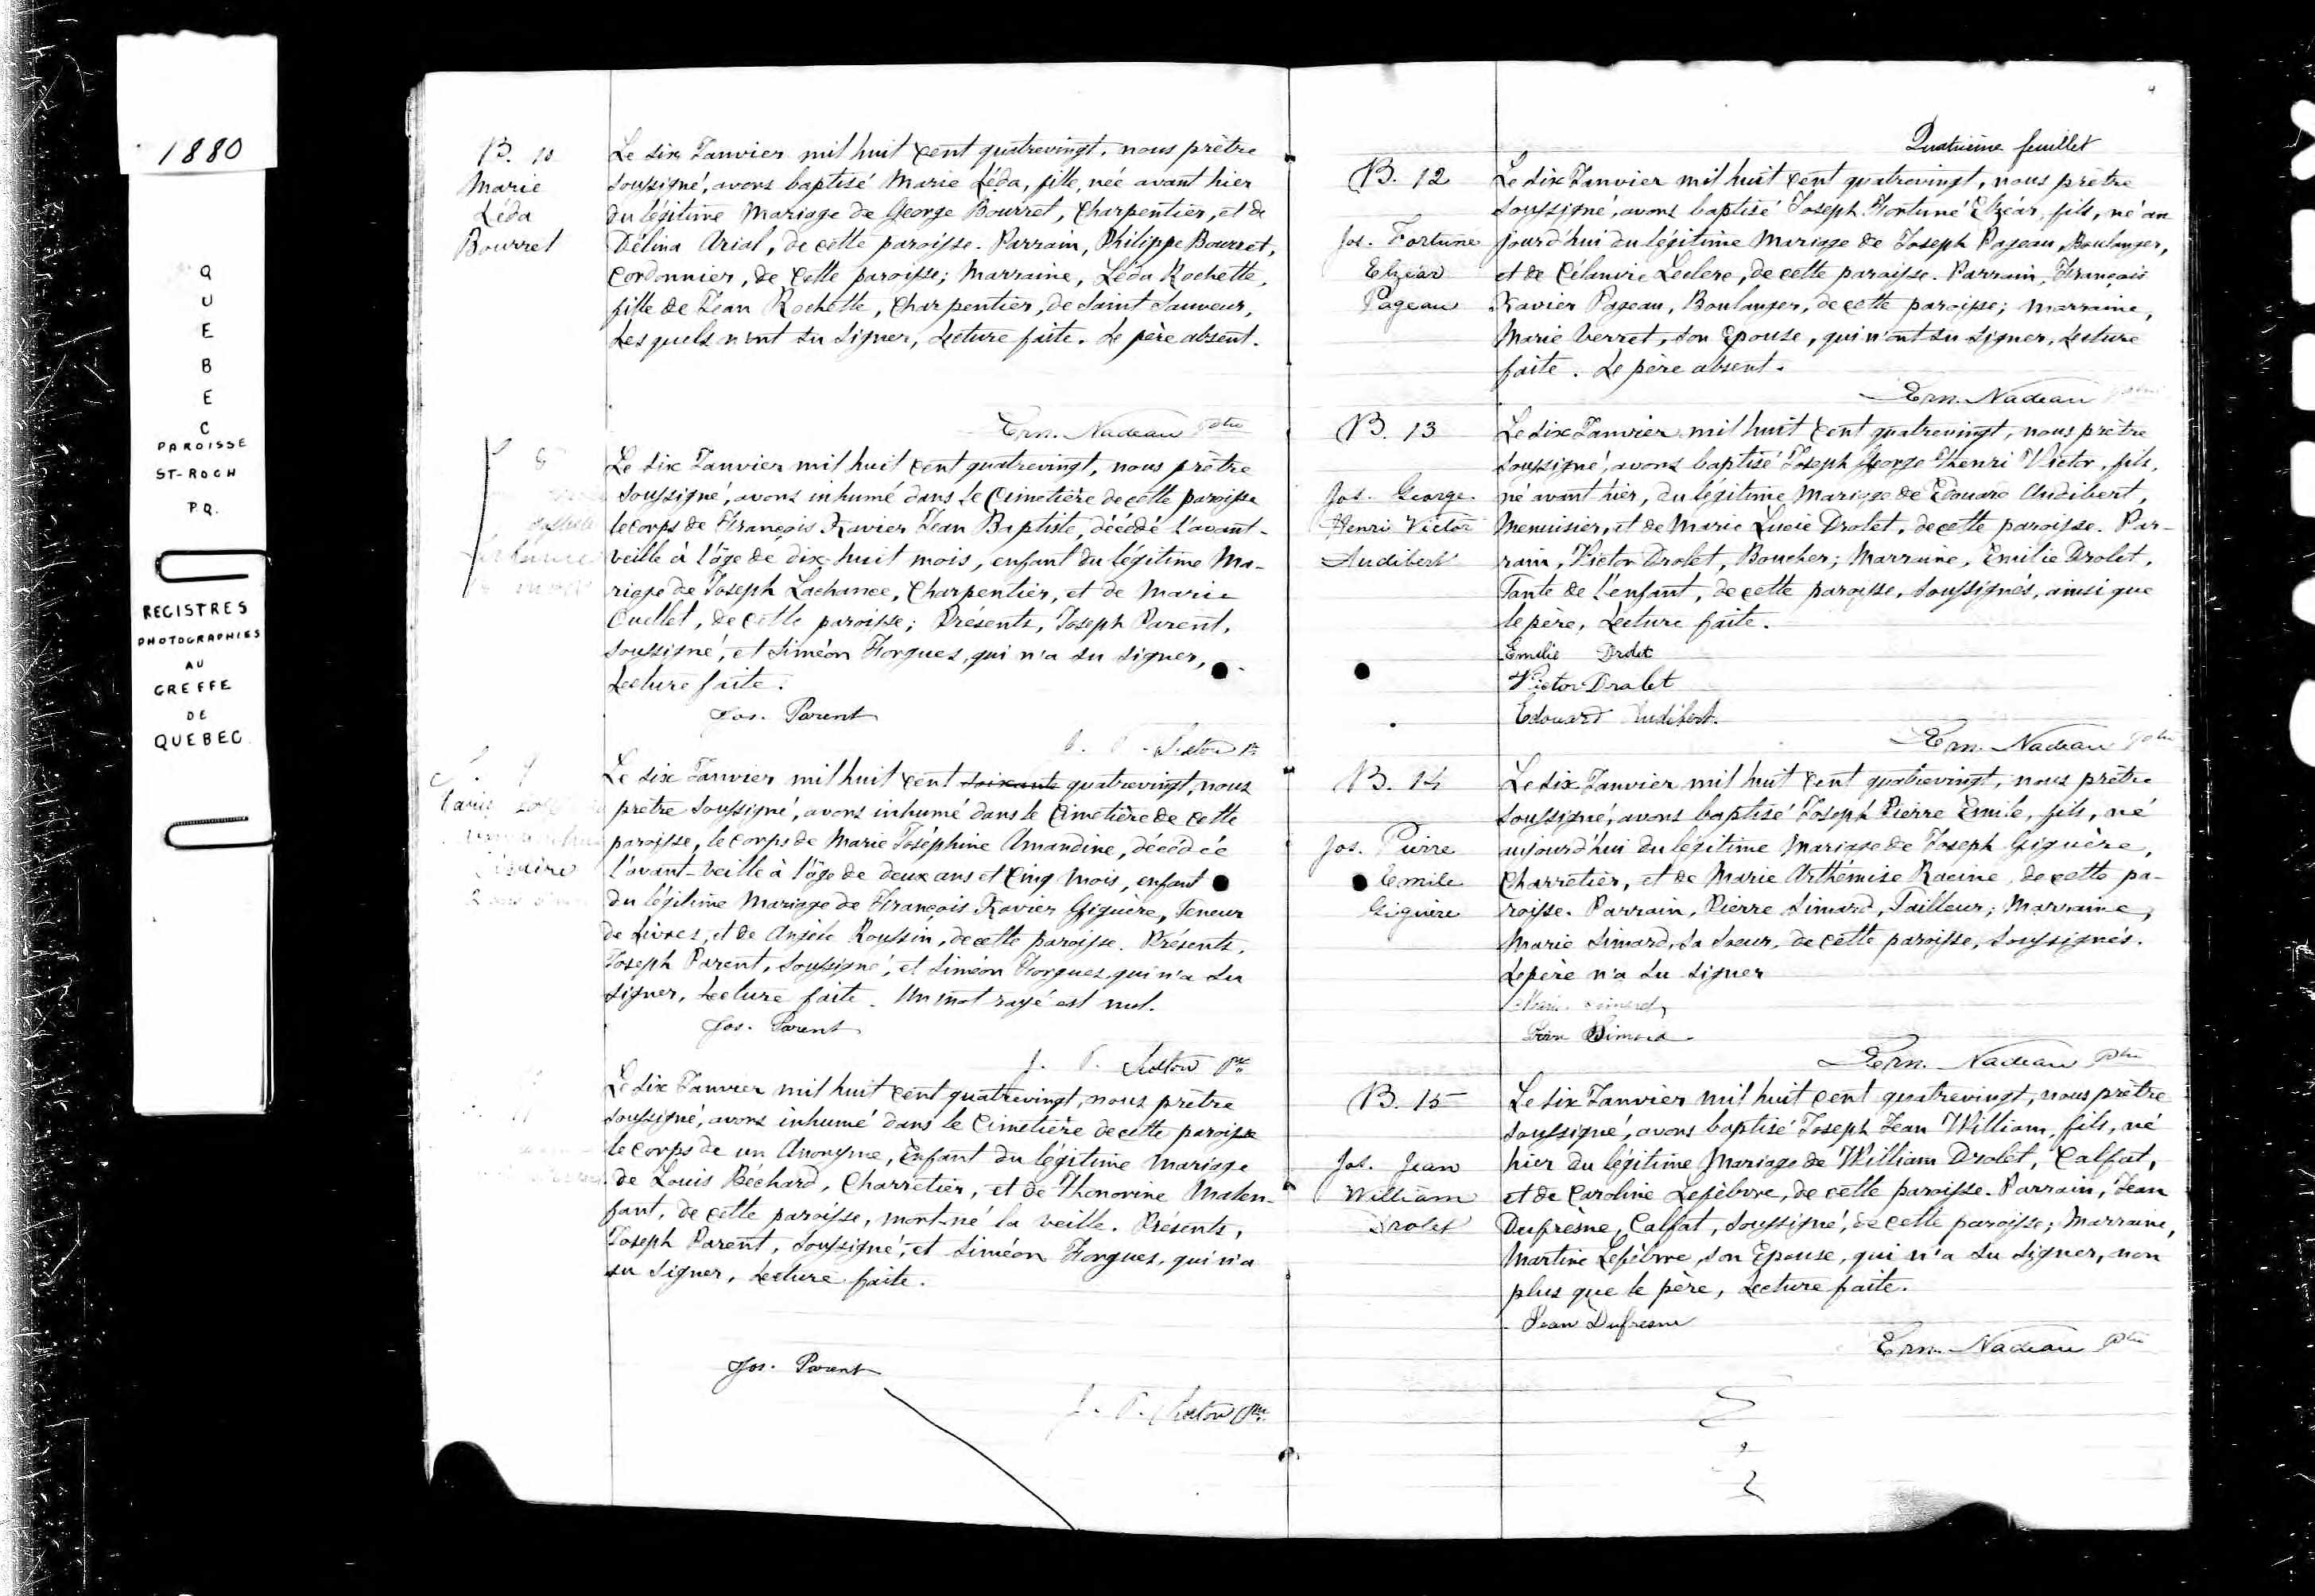 1880
QUEBEC
PAROISSE
ST-ROCH
P.Q.
REGISTRES
PHOTOGRAPHIES
AU
GREFFE
DE
QUEBEC
B. 10
Marie
Léda
Bourret
Le six Janvier mil huit cent quatrevingt, nous prêtre
soussigné, avons baptisé Marie Léda, fille, née avant hier
du légitime Mariage de George Bourret, Charpentier, et de
Délina Arial, de cette paroisse. Parrain, Philippe Bourret,
Cordonnier, de cette paroisse; Marraine, Léda Rochette,
fille de Jean Rochette, Charpentier, de Saint Sauveur,
Lesquels n'ont su signer, Lecture faite. Le père absent.
Ern. Nadeau Ptre
S
Le six Janvier mil huit cent quatrevingt, nous prêtre
soussigné, avons inhumé dans le Cimetière de cette paroisse
le corps de François Xavier Jean Baptiste, décédé l'avant-
veille à l'âge de dix-huit mois, enfant du légitime Ma-
riage de Joseph Lachance, Charpentier, et de Marie
Ouellet, de cette paroisse; Présents, Joseph Parent,
soussigné, et Siméon Forgues, qui n'a su signer,
Lecture faite.
Jos. Parent
Le six Janvier mil huit cent soixante quatrevingt, nous
prêtre soussigné, avons inhumé dans le Cimetière de cette
paroisse, le corps de Marie Joséphine Amandine, décédée
l'avant-veille à l'âge de deux ans et cinq mois, enfant
du légitime Mariage de François Xavier Giguère, Teneur
de Livres, et de Angèle Roussin, de cette paroisse. Présents,
Joseph Parent, soussigné, et Siméon Forgues, qui n'a su
signer, Lecture faite. Un mot rayé est nul.
Jos. Parent
Le six Janvier mil huit cent quatrevingt, nous prêtre
soussigné, avons inhumé dans le Cimetière de cette paroisse
le corps de un Anonyme, Enfant du légitime Mariage
de Louis Béchard, Charretier, et de Honorine Malen-
fant, de cette paroisse, mort-né la veille. Présents,
Joseph Parent, soussigné, et Siméon Forgues, qui n'a
su signer, Lecture faite.
Jos. Parent
Quatrième feuillet
B. 12
Jos. Fortuné
Elzéar
Pageau
Le six Janvier mil huit cent quatrevingt, nous prêtre
soussigné, avons baptisé Joseph Fortuné Elzéar, fils, né au
jourd'hui du légitime Mariage de Joseph Pageau, Boulanger,
et de Célanvie Leclerc, de cette paroisse. Parrain, François
Xavier Pageau, Boulanger, de cette paroisse; Marraine,
Marie Verret, son Epouse, qui n'ont su signer, Lecture
faite. Le père absent.
Ern. Nadeau Ptre
B. 13
Jos. George
Henri Victor
Audibert
Le six Janvier mil huit cent quatrevingt, nous prêtre
soussigné, avons baptisé Joseph George Henri Victor, fils,
né avant hier, du légitime Mariage de Edouard Audibert,
Menuisier, et de Marie Lucie Drolet, de cette paroisse. Par-
rain, Victor Drolet, Boucher; Marraine, Emilie Drolet,
Tante de l'enfant, de cette paroisse, soussignés, ainsi que
le père, Lecture faite.
Emilie Drolet
Victor Drolet
Edouard Audibert
Ern. Nadeau Ptre
B. 14
Jos. Pierre
Emile
Giguère
Le six Janvier mil huit cent quatrevingt, nous prêtre
soussigné, avons baptisé Joseph Pierre Emile, fils, né
aujourd'hui du légitime Mariage de Joseph Giguère,
Charretier, et de Marie Arthémise Racine, de cette pa-
roisse. Parrain, Pierre Simard, Tailleur; Marraine,
Marie Simard, sa soeur, de cette paroisse, soussignés.
Le père n'a su signer
Marie Simard
Pierre Simard
Ern. Nadeau Ptre
B. 15
Jos. Jean
William
Drolet
Le six Janvier mil huit cent quatrevingt, nous prêtre
soussigné, avons baptisé Joseph Jean William, fils, né
hier du légitime Mariage de William Drolet, Calfat,
et de Caroline Lefèbvre, de cette paroisse. Parrain, Jean
Dufresne, Calfat, soussigné, de cette paroisse; Marraine,
Martine Lefèbvre, son Epouse, qui n'a su signer, non
plus que le père, Lecture faite.
Jean Dufresne
Ern. Nadeau Ptre